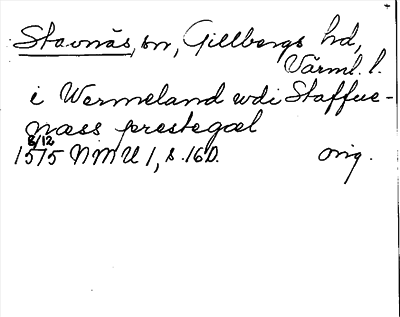 Stavnäs, sn, Gillbergs hd,
Värml. l.
i Wermeland wdi Staffue-
næss prestegæl
8/12
1575 NMU 1, s. 160. orig.